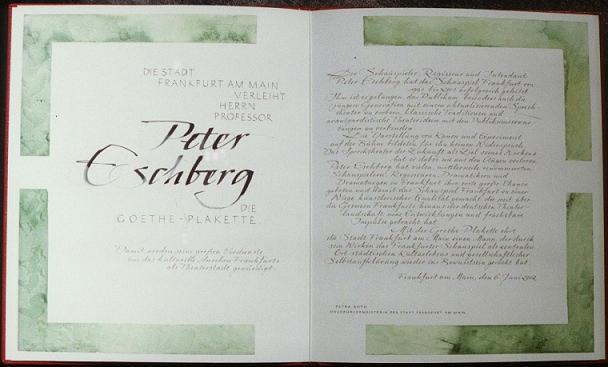 DIE STADT
FRANKFURT AM MAIN
VERLEIHT
HERRN
PROFESSOR
Peter
Eschberg
DIE
GOETHE-PLAKETTE.
Damit werden seine großen Verdienste
um das kulturelle Ansehen Frankfurts
als Theaterstadt gewürdigt.
Der Schauspieler, Regisseur und Intendant
Peter Eschberg hat das Schauspiel Frankfurt von
erfolgreich geleitet.
Ihm ist es gelungen, das Publikum, besonders auch die
jüngere Generation mit einem aktualisierenden Sprech-
theater zu erobern, klassische Traditionen und
avantgardistische Theaterideen mit den Publikumserwar-
tungen zu verbinden.
Die Darstellung von Kanon und Experiment
auf der Bühne bildeten für ihn keinen Widerspruch.
Das Sprechtheater der Zukunft als Ziel seines Wirkens
hat er dabei nie aus den Augen verloren.
Peter Eschberg hat vielen, mittlerweile renommierten
Schauspielern, Regisseuren, Dramatikern und
Dramaturgen in Frankfurt ihre erste große Chance
gegeben und damit das Schauspiel Frankfurt zu einer
Wiege künstlerischer Qualität gemacht, die weit über
die Grenzen Frankfurts hinaus der deutschen Theater-
landschaft neue Entwicklungen und frischeste
Impulse gebracht hat.
Mit der Goethe-Plakette ehrt
die Stadt Frankfurt am Main einen Mann, der durch
sein Wirken das Frankfurter Schauspiel als zentralen
Ort städtischen Kulturlebens und gesellschaftlicher
Selbstaufklärung wieder ins Bewußtsein gerückt hat.
Frankfurt am Main, den 6. Juni
PETRA ROTH
OBERBÜRGERMEISTERIN DER STADT FRANKFURT AM MAIN